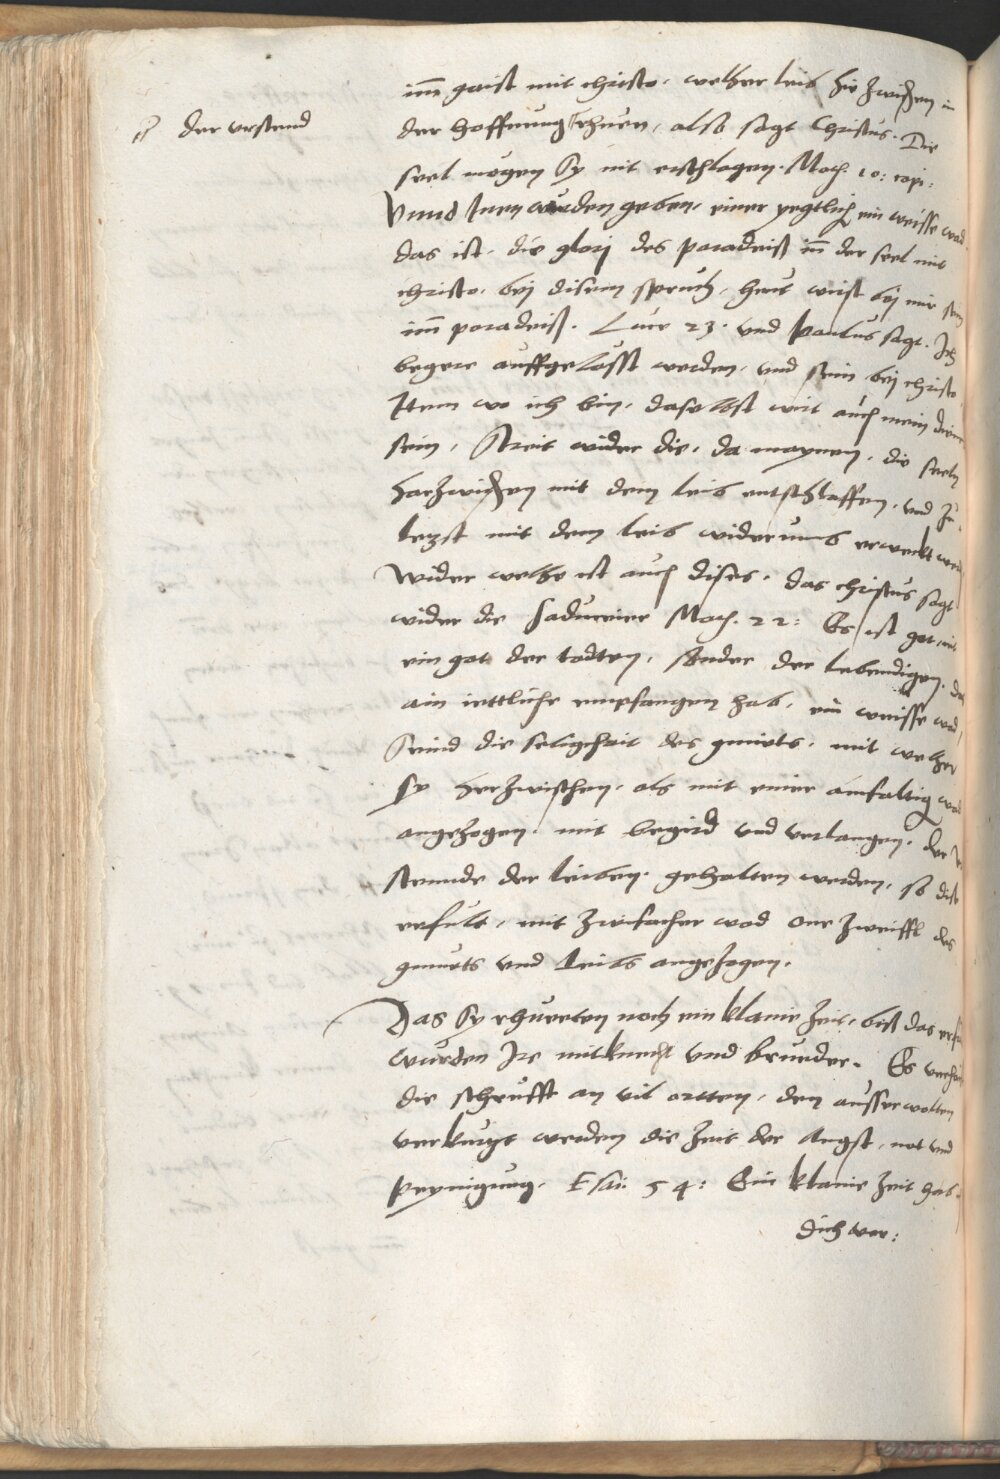 der urstend
im gaist mit christo. welher leib hie zwischen in
der hoffnung rhuen, also sagt Christus. Die
seel mögen sy nit erschlagen. Math. 10: capi:
Unnd Inen wurden geben, einer yegtlich ein weisse wad
das ist. die glorj des paradeiß in der seel mit
christo. bej disem spruch, heut wirst bej mir sein
im paradeiß. Luce 23. und paulus sagt. Ich
begere auffgelösst werden, und sein bej christo
Item wo ich bin, daselbst wirt auch mein diener
sein, Streit wider die, da maynen, die seeln
hierzwischen mit dem leib entschlaffen, und zu
letzst mit dem leib widerumb erweckt wer
Wider welhe ist auch dises. das christus sagt
wider die saduceier Math. 22: Es ist got nit
ein got der todten, sonder der lebendigen. das
ain iettliche empfangen hab, ein weisse wad,
Seind die seligkeit des gmüets. mit welher
sy herzwischen, als mit einer ainfaltig wad
angezogen, mit begird und verlangen. der ur
stennde der leiben. gehalten werden, so dise
erfült, mit zwifacher wad one zweiffl des
gmüets und leibs angezogen.
Das sy rhueeten noch ein klanie zeit, biß das erfü
wurden Ire mitknecht und brüeder. Es verhai
die schrüfft an vil ortten, den ausserwölten
verkurtzt werden die zeit der Angst, not und
peynigung. Esai. 54: Ein klanie zeit hab
dich ver: